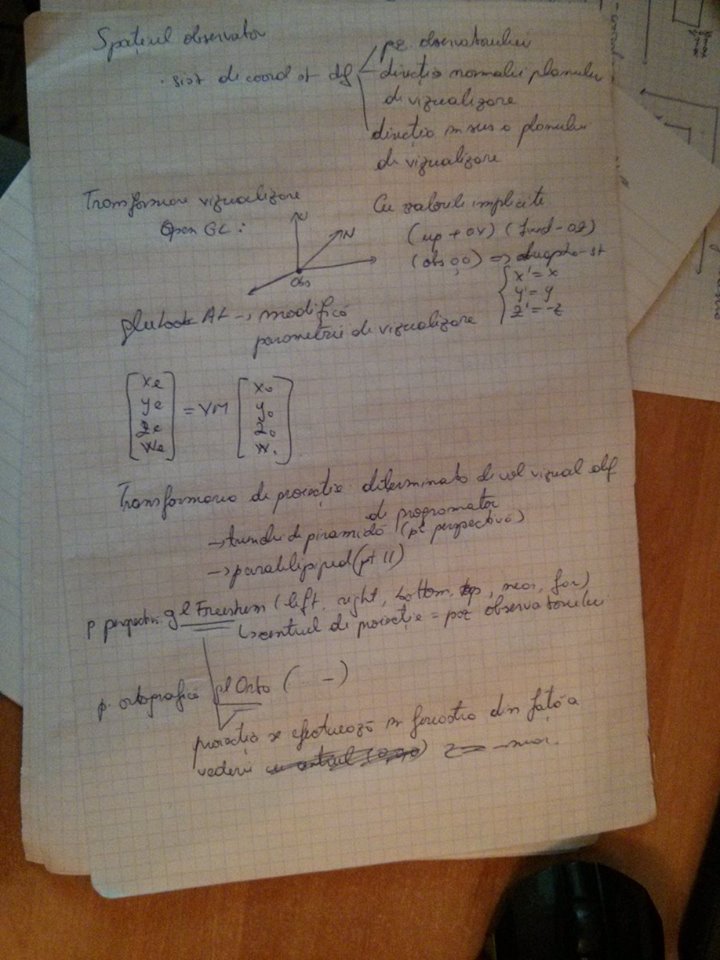 Spațiul observator
· sist de coord st df
poz. observatorului
direcția normalei planului
de vizualizare
direcția în sus a planului
de vizualizare
Transformare vizualizare
Open GL:
U
N
Obs
Cu valorile implicite
(up + OY) (fwd - OZ)
(obs 0,0) =>
x' = x
y' = y
z' = -z
glulook At -> modifică
parametrii de vizualizare
xe
ye
ze
we
= VM
xo
yo
zo
wo
Transformarea de proiecție determinată de vol vizual df
de programator
-> trunchi de piramidă (pt perspectivă)
-> paralelipiped (pt ||)
p perspectiv. gl Frustum (left, right, bottom, top, near, far)
centrul de proiecție = poz observatorului
p. ortografică gl Orto ( ... )
proiecția se efectuează în fereastra din față a
vederii z = -near.